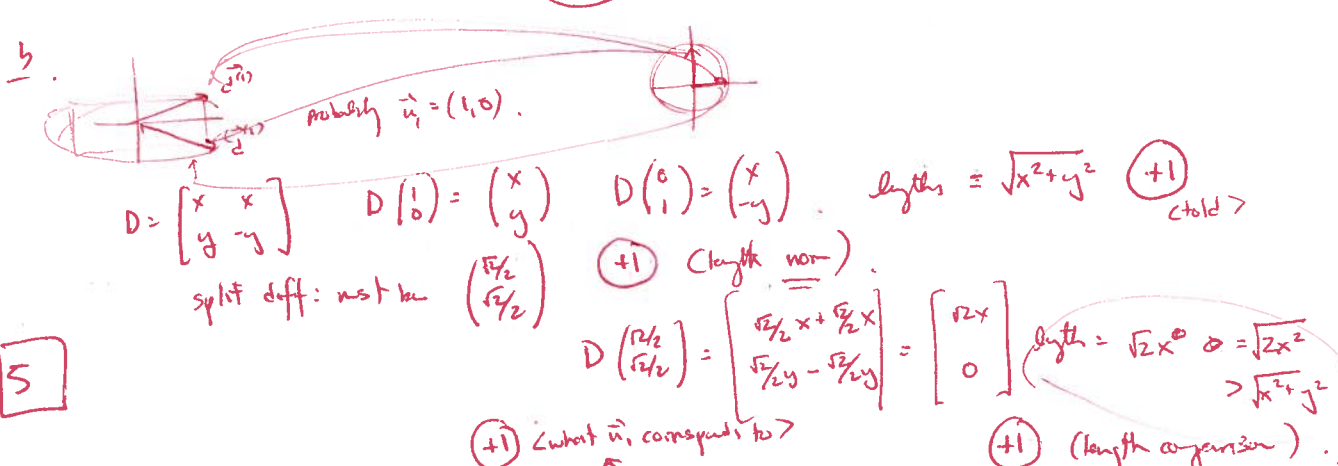 b.
d⃗⁽¹⁾
d⃗⁽²⁾
probably u⃗₁ = (1,0).
D = [x x; y -y] D(1; 0) = (x; y) D(0; 1) = (x; -y). lengths = √x²+y² +1
<told>
split diff: must be (√2/2; √2/2) +1 (length norm).
D(√2/2; √2/2) = [√2/2 x + √2/2 x; √2/2 y - √2/2 y] = [√2x; 0] length = √2x = √2x²
> √x²+y²
5
+1 <what u⃗₁ corresponds to> +1 (length comparison).